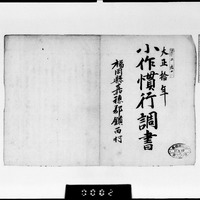 大正拾年
小作慣行調書
福岡縣嘉穂郡鎮西村
0002